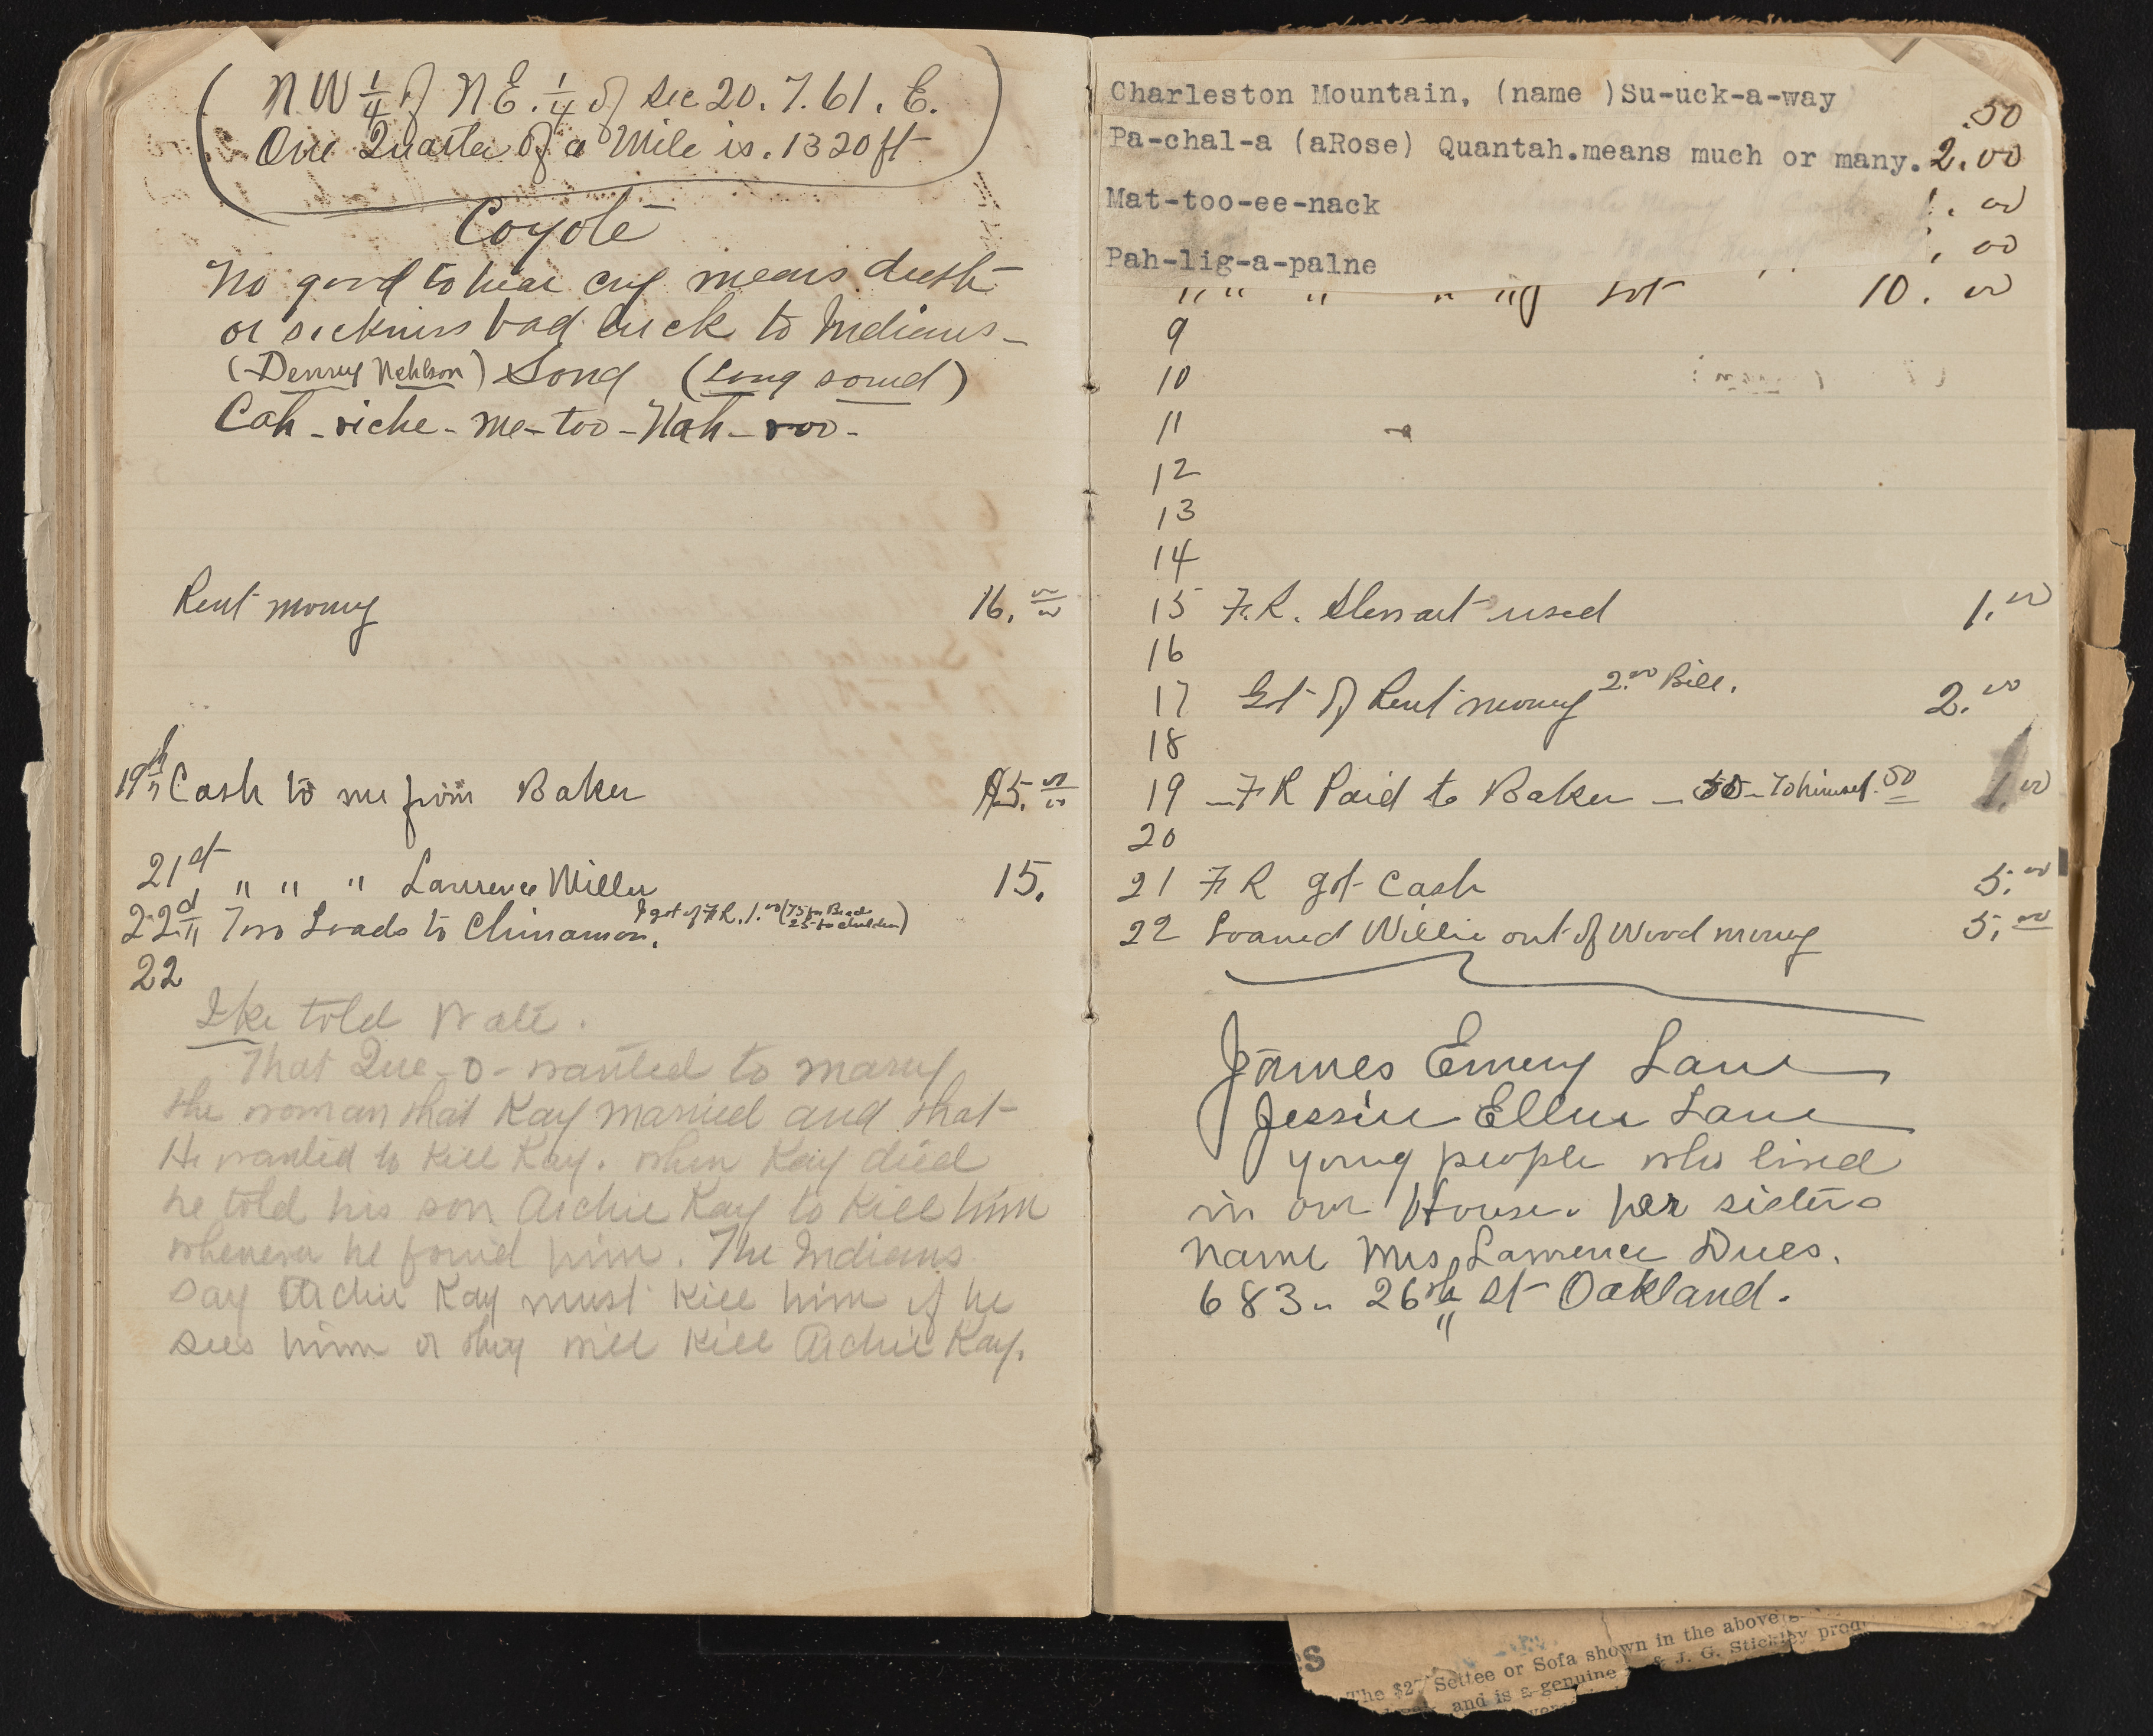 N W 1/4 of N E. 1/4 of Sec 20. T. 61. E.
One Quarter of a Mile is. 1320 ft
Coyote
No good to hear cry means death
or sickness bad luck to Indians-
(Denny Nehlson) Song (Long sound)
Cah-viche-me-too-Nah-voo-
Rent money 16.00
19th Cash to me from Baker 5.00
21st " " " Lawrence Miller 15.
22d Two Loads to Chinaman. I got of F R. 1.00 (75 for Bread
25 to children)
22
Ike told Nate.
That Que-o-wanted to marry
the woman that Kay married and that
He wanted to Kill Kay. when Kay died
he told his son Archie Kay to Kill him
whenever he found him. The Indians
say Archie Kay must Kill him if he
sees him or they will Kill Archie Kay.
Charleston Mountain, (name )Su-uck-a-way .50
Pa-chal-a (aRose) Quantah.means much or many. 2.00
Mat-too-ee-nack 1.00
Pah-lig-a-palne .00
" " " " " 10.00
9
10
11
12
13
14
15 F. R. Stewart used 1.00
16
17 Got of Rent money 2.00 Bill. 2.00
18
19 - F R Paid to Baker - 50 - To himself. 50 1.00
20
21 F R got Cash 5.00
22 Loaned Willie out of Wood money 5.00
James Emery Lane
Jessie Ellen Lane
young people who lived
in our House. her sisters
name Mrs Lawrence Dues.
683. 26th St Oakland.
The $27 Settee or Sofa shown in the above
and is a genuine & J. G. Stickley